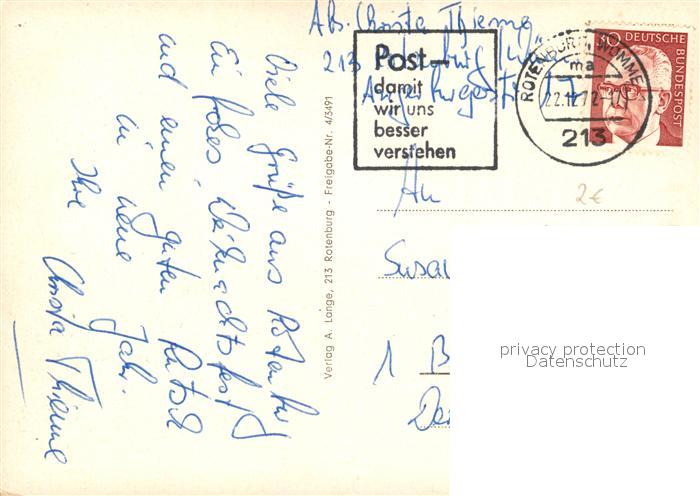 Viele Grüße aus Rotenburg
Ein frohes Weihnachtsfest
und einen guten Rutsch
in neue Jahr.
Ihre
Christa Thieme
Verlag A. Lange, 213 Rotenburg - Freigabe-Nr. 4/3491
Abs. Christa Thieme
213
Post-
damit
wir uns
besser
verstehen
ROTENBURG WÜMME
ma
22.12.72
213
30 DEUTSCHE
BUNDESPOST
2€
An
Susan
1 B
privacy protection
Datenschutz